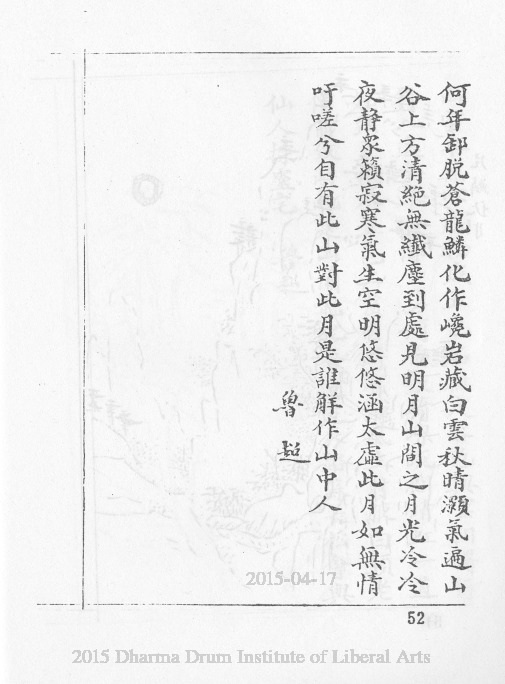 何年卸脫蒼龍鱗化作巉岩藏白雲秋晴灝氣遍山
谷上方清絕無纖塵到處見明月山間之月光冷冷
夜静眾籟寂寒氣生空明悠悠涵太虛此月如無情
吁嗟兮自有此山對此月是誰觧作山中人
魯超
2015-04-17
52
2015 Dharma Drum Institute of Liberal Arts